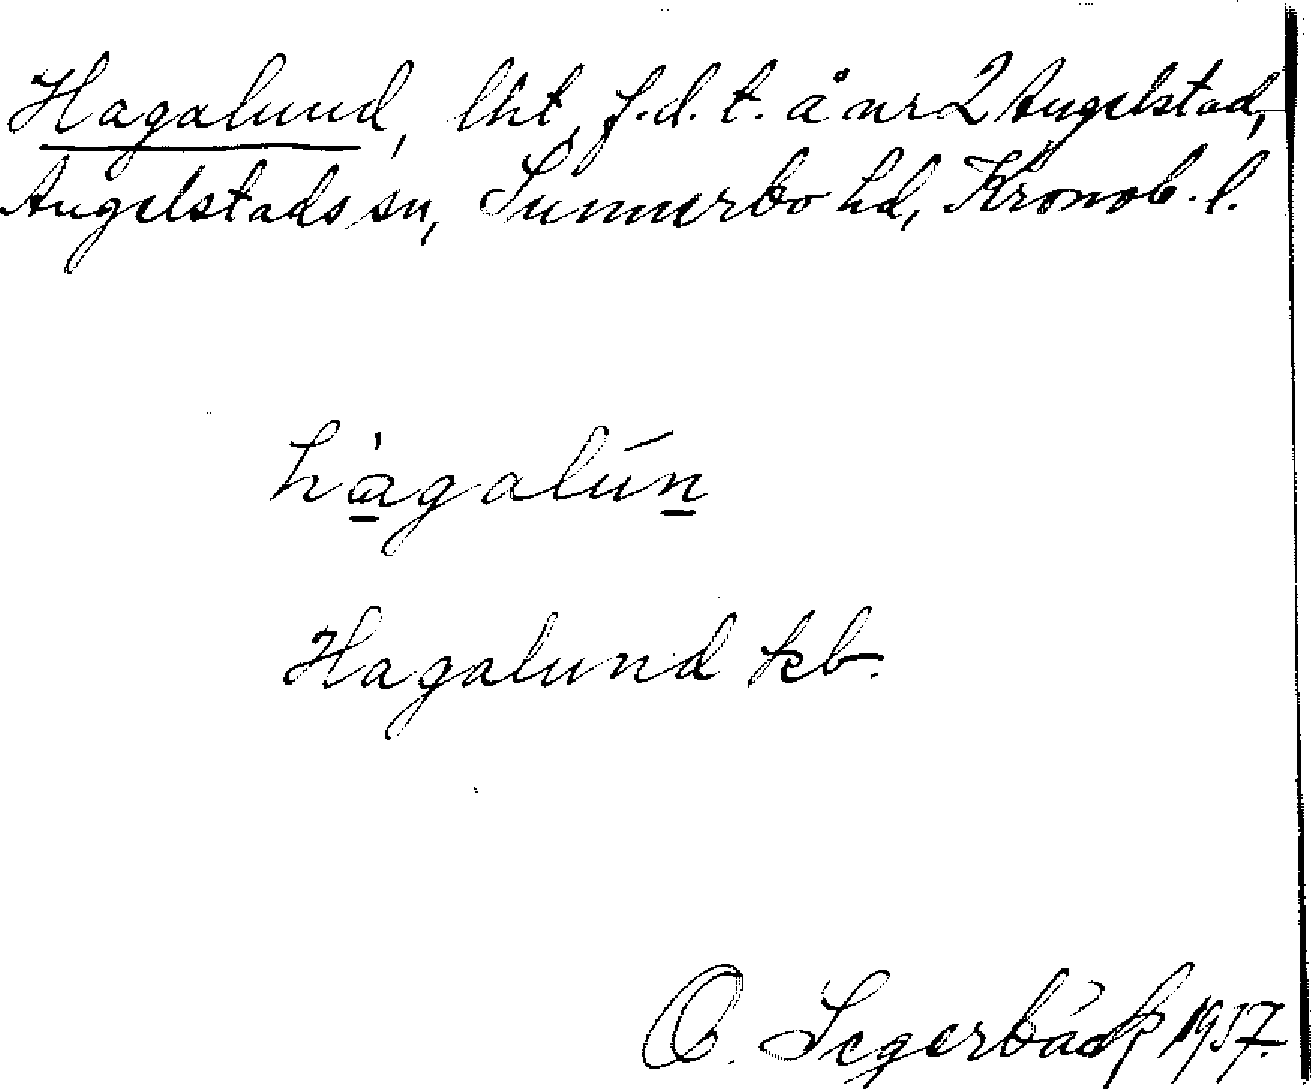 Hagalund, lht, f.d. t. å nr 2 Angelstad,
Angelstads sn, Sunnerbo hd, Kronob. l.
hàgalún
Hagalund kb.
O. Segerbäck 1937.